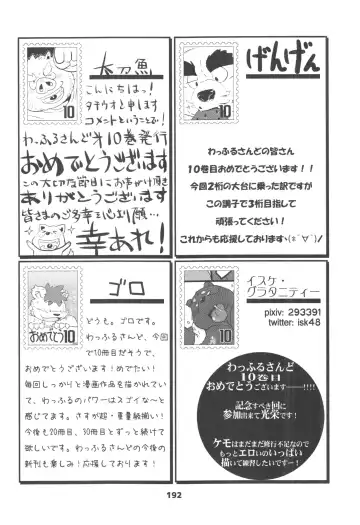 太刀魚
10
こんにちはっ!
タチウオと申します
コメントということで!
わっふるさんど第10巻発行
おめでとうございます
この大切な節目にお声がけ頂き
ありがとうございます
皆さまのご多幸を心より願…
幸あれ!
げんげん
10
わっふるさんどの皆さん
10巻目おめでとうございます!!
今回2桁の大台に乗った訳ですが
この調子で3桁目指して
頑張ってください!
これからも応援しておりますヽ(*´∀`)ノ
ゴロ
10
おめでとう
どうも。ゴロです。
わっふるさんど、今回
で10冊目だそうで、
おめでとうございます!めでたい!
毎回しっかりと漫画作品を描かれてい
て、わっふるのパワーはスゴイなぁ~と
感じてます。さすが超・重量級揃い!
今後も20冊目、30冊目とずっと続けて
欲しいです。わっふるさんどの今後の
新刊も楽しみ!応援しております!
イスケ・
グラタニティー
pixiv: 293391
twitter: isk48
10
わっふるさんど
10巻目
おめでとうございますーーー!!!!
記念すべき回に
参加出来て光栄です!
ケモはまだまだ修行不足なので
もっとエロいのいっぱい
描いて練習したいですー!
192